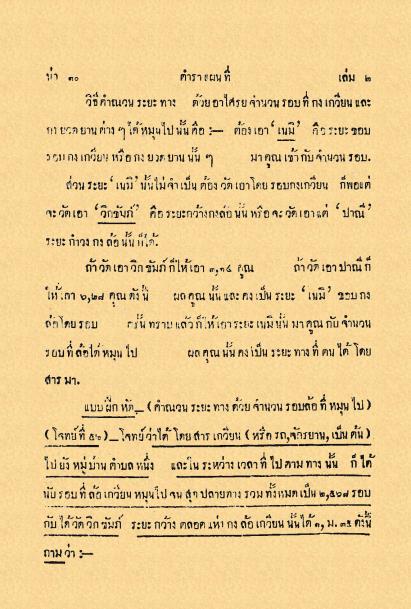 น่า ๓๐ ตำราแผนที่ เล่ม ๒
วิธีคำณวนระยะทาง ด้วยอาไศรยจำนวนรอบที่กงเกวียนและ
กงยวดยานต่างๆได้หมุนไปนั้นคือ :— ต้องเอา ‘เนมิ’ คือระยะขอบ
รอบกงเกวียนหรือกงยวดยานนั้นๆ มาคูณเข้ากับจำนวนรอบ.
ส่วนระยะ ‘เนมิ’ นั้นไม่จำเป็นต้องวัดเอาโดยรอบกงเกวียน ก็พอแต่
จะวัดเอา ‘วิกขัมภ์’ คือระยะกว้างกงล้อนั้นหรือจะวัดเอาแต่ ‘ปาณี’
ระยะกำวงกงล้อนั้นก็ได้.
ถ้าวัดเอาวิกขัมภ์ก็ให้เอา ๓,๑๔ คูณ ถ้าวัดเอาปาณีก็
ให้เอา ๖,๒๘ คูณดังนี้ ผลคูณนั้นและคงเป็นระยะ ‘เนมิ’ ขอบกง
ล้อโดยรอบ ครั้นทราบแล้วก็ให้เอาระยะเนมินั้นมาคูณกับจำนวน
รอบที่ล้อได้หมุนไป ผลคูณนั้นคงเป็นระยะทางที่ตนได้โดย
สารมา.
แบบฝึกหัด_(คำณวนระยะทางด้วยจำนวนรอบล้อที่หมุนไป)
(โจทย์ที่ ๕๒)_โจทย์ว่าได้โดยสารเกวียน (หรือรถ,จักรยาน,เป็นต้น)
ไปยังหมู่บ้านตำบลหนึ่ง และในระหว่างเวลาที่ไปตามทางนั้น ก็ได้
นับรอบที่ล้อเกวียนหมุนไปจนสุดปลายทางรวมทั้งหมดเป็น ๒,๕๖๘ รอบ
กับได้วัดวิกขัมภ์ ระยะกว้างตลอดแห่งกงล้อเกวียนนั้นได้ ๑, ม. ๓๕ ดังนี้
ถามว่า :—